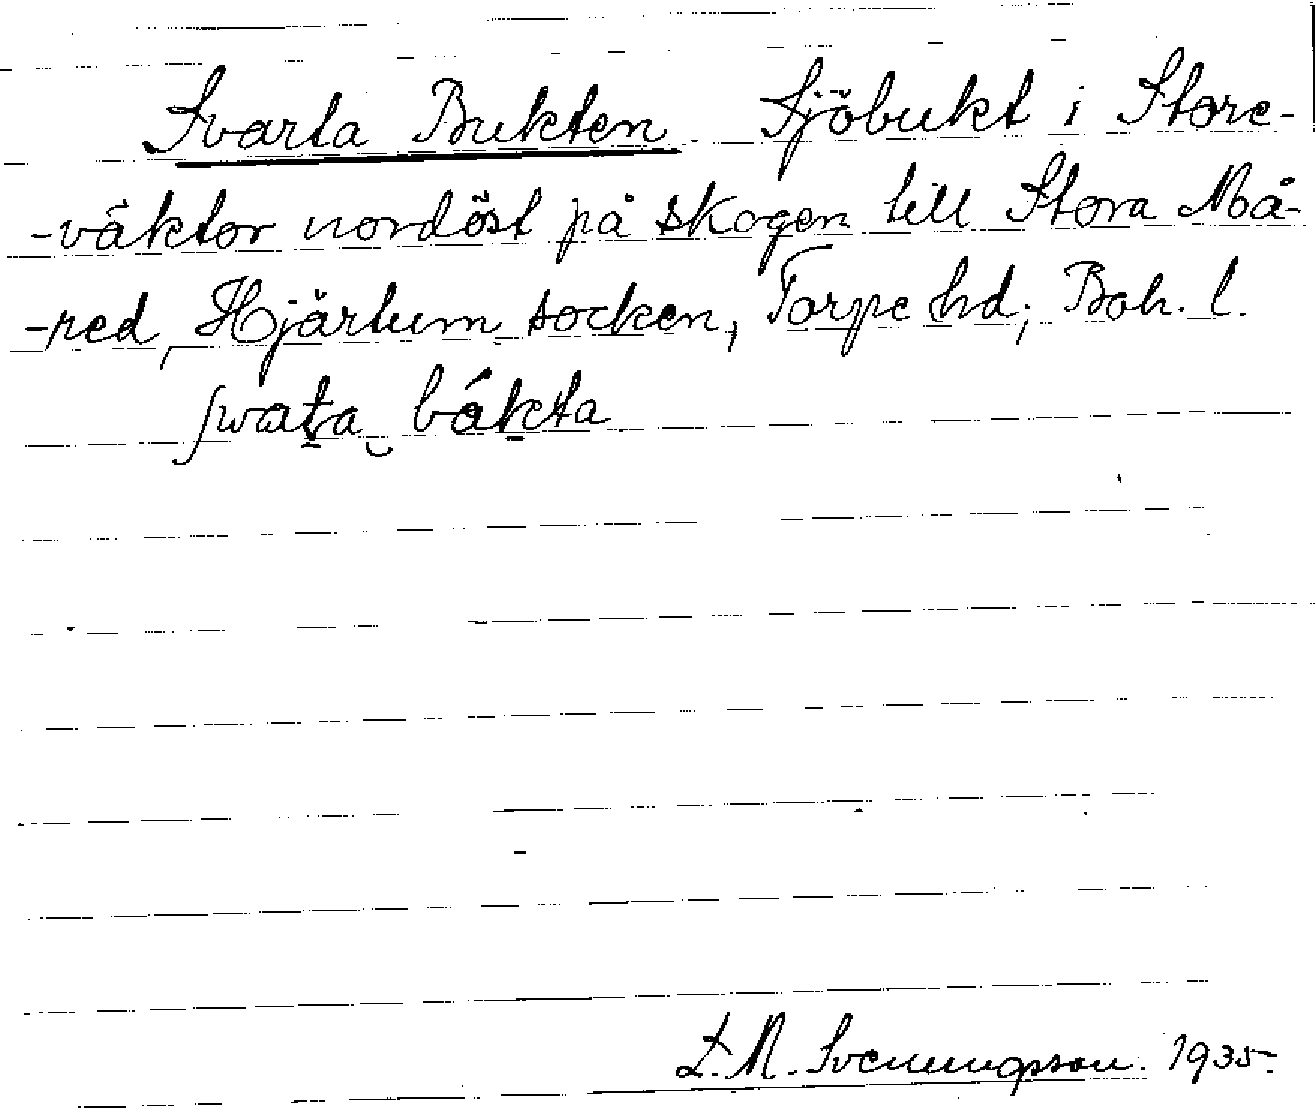 Svarta Bukten Sjöbukt i Store-
-väktor nordöst på skogen till Stora Må-
-red, Hjärtum socken, Torpe hd; Boh. l.
ʃwaṯa‿bákta
M. Svenungsson. 1935.